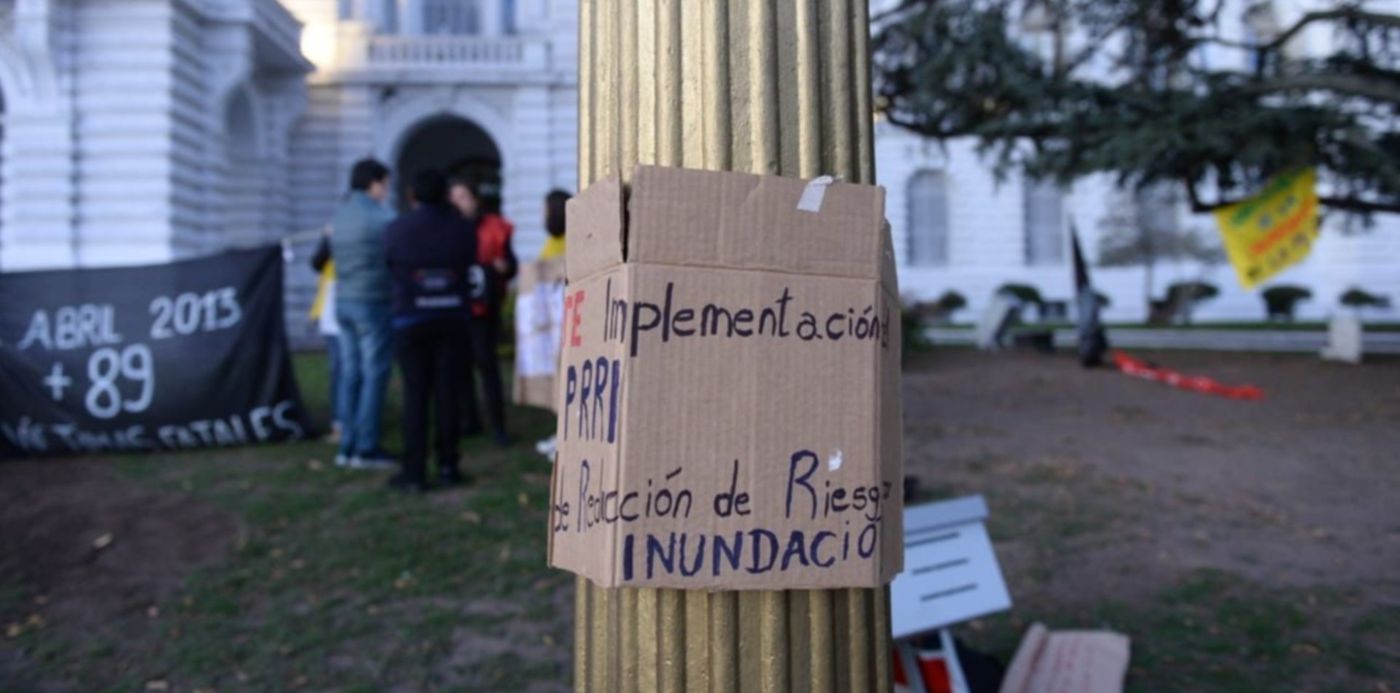 ABRIL 2013
+ 89
VÍCTIMAS FATALES
Implementación
PRRI
de Reducción de Riesgo
INUNDACIO